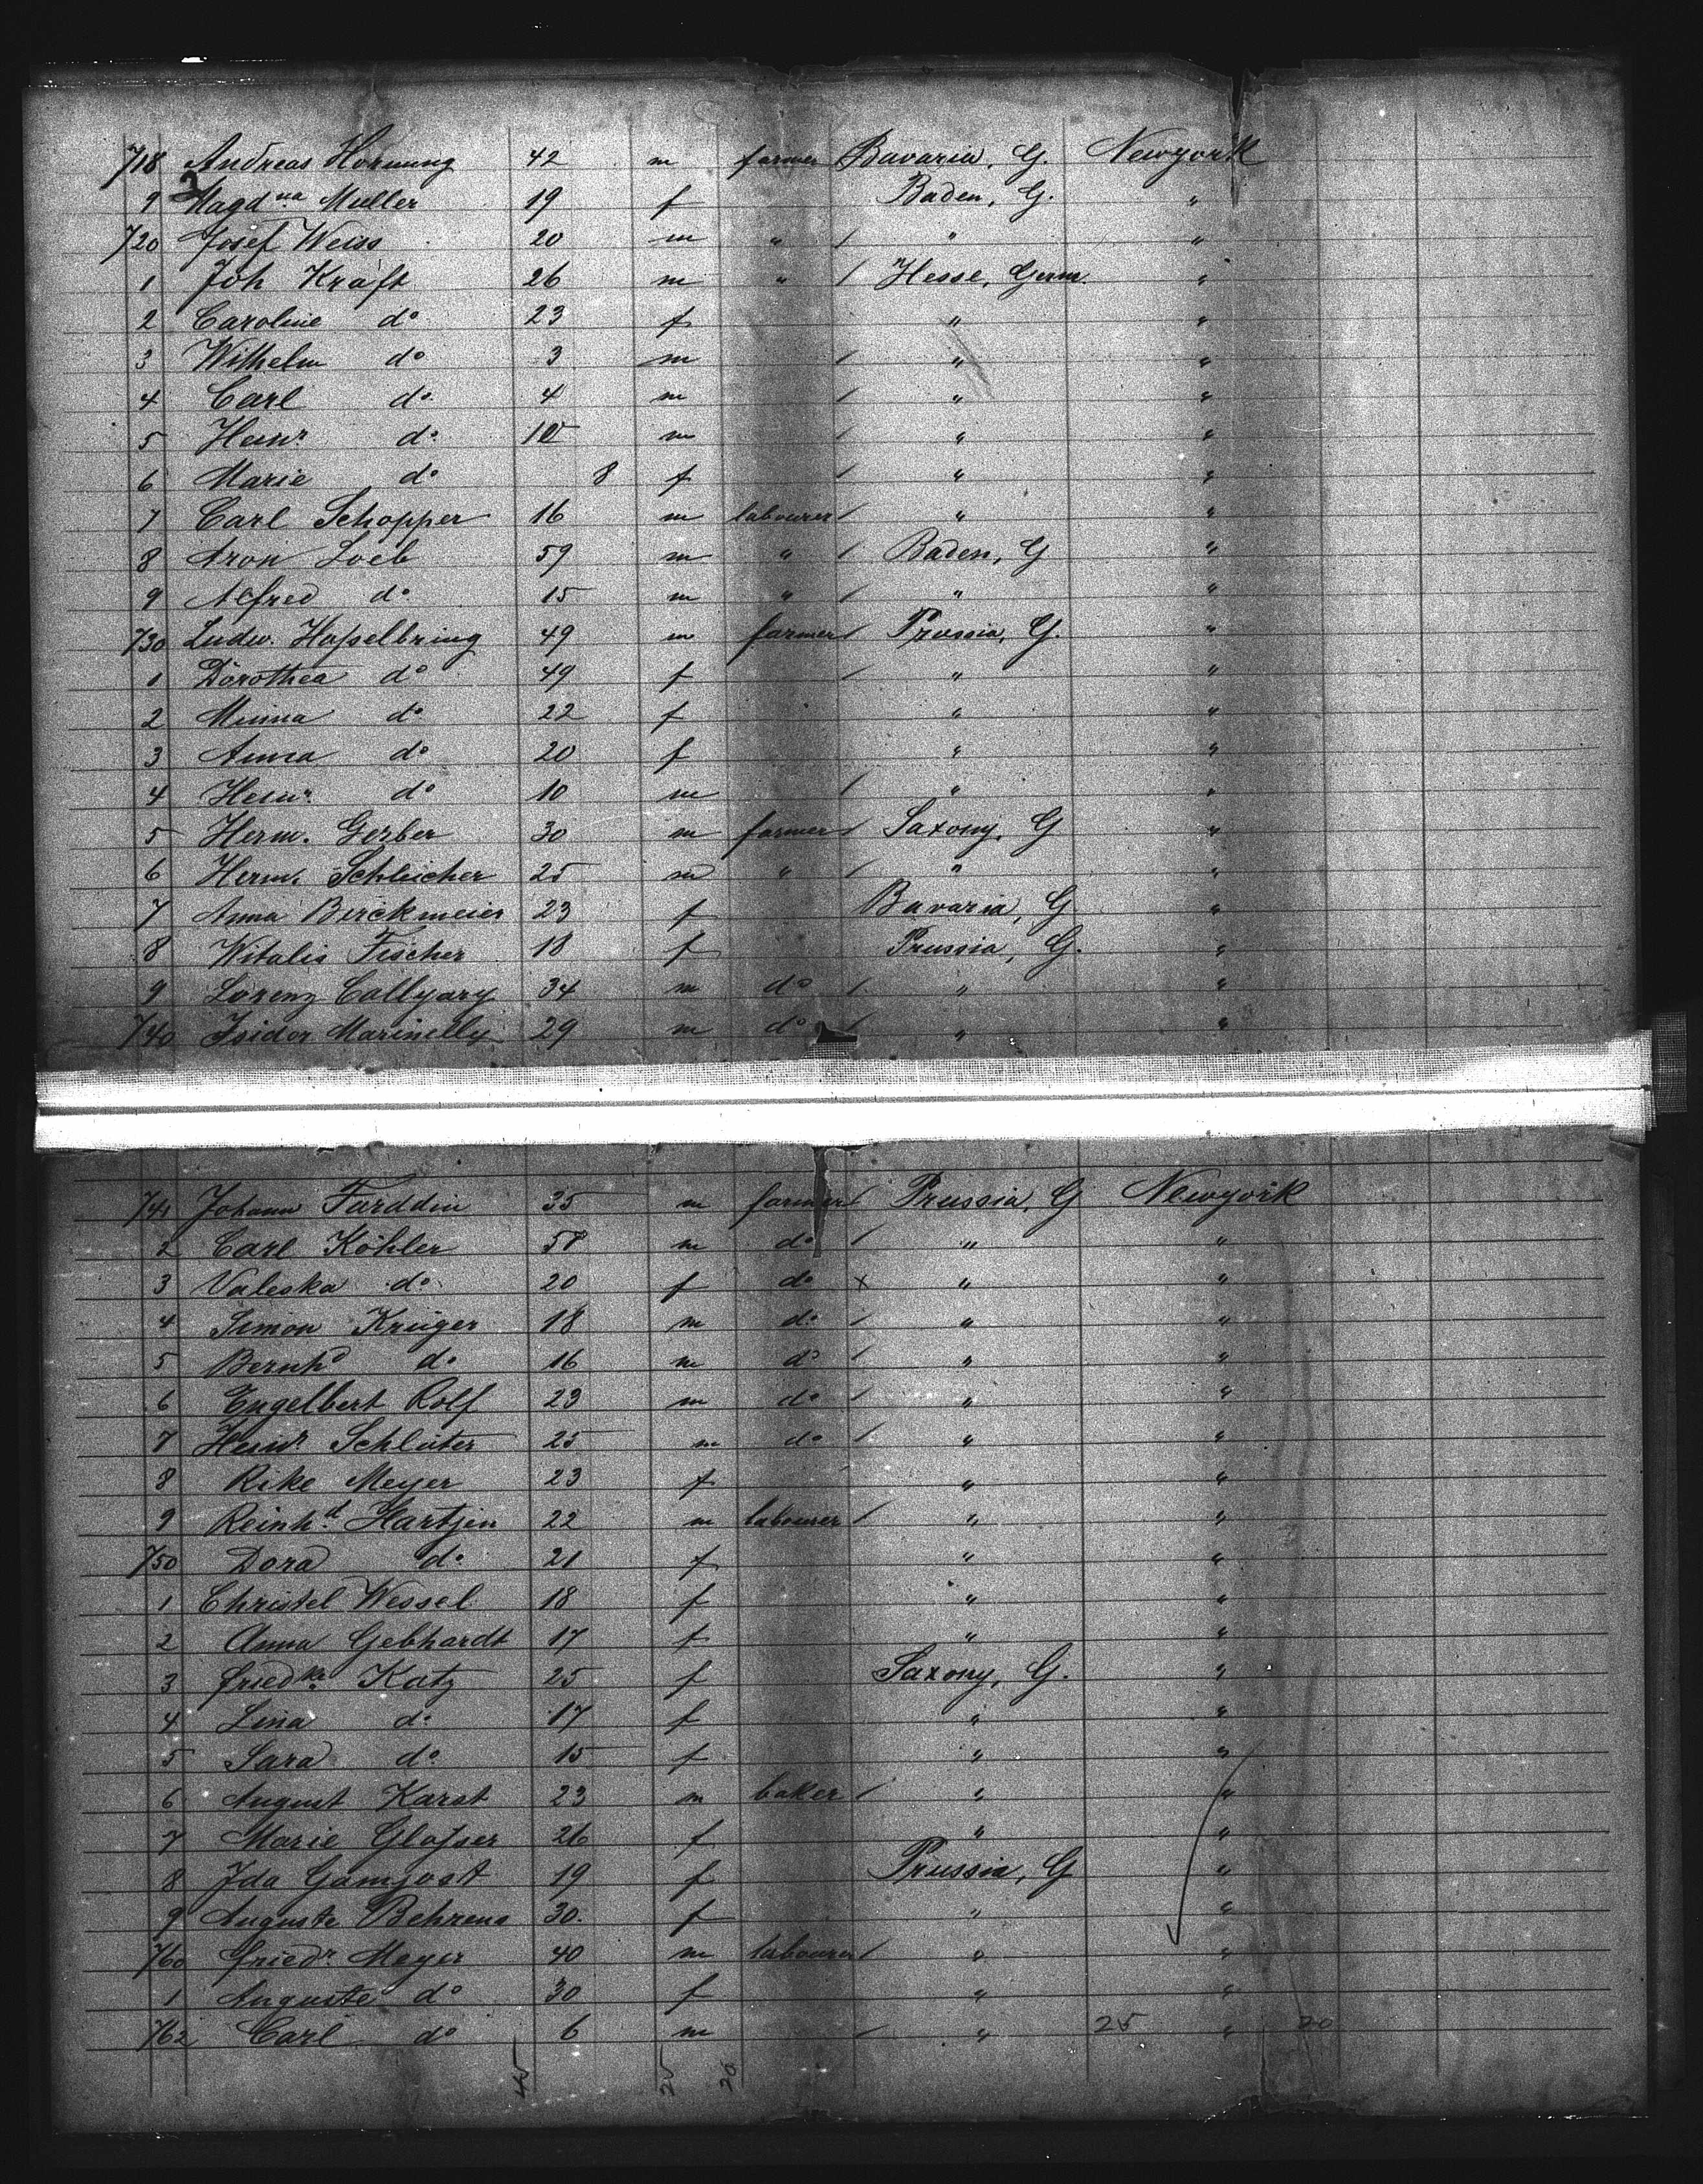 718 Andreas Hornung 42 m farmer Bavaria, G. Newyork
9 Magdna Muller 19 f Baden, G. "
720 Josef Weiss 20 m " / " "
1 Joh Kraft 26 m " / Hesse, Germ. "
2 Caroline do 23 f " "
3 Wilhelm do 3 m / " "
4 Carl do 4 m / " "
5 Heinr do 10 m / " "
6 Marie do 8 f / " "
7 Carl Schopper 16 m labourer / " "
8 Aron Loeb 59 m " / Baden, G "
9 Alfred do 15 m " / " "
730 Ludw. Haßelbring 49 m farmer / Prussia, G. "
1 Dorothea do 49 f / " "
2 Minna do 22 f " "
3 Anna do 20 f " "
4 Heinr do 10 m / " "
5 Herm. Gerber 30 m farmer / Saxony, G "
6 Herm. Schleicher 25 m " / " "
7 Anna Birckmeier 23 f Bavaria, G "
8 Witalis Fischer 18 f Prussia, G. "
9 Lorenz Callyary 34 m do / " "
740 Isidor Marinelly 29 m do / " "
741 Johann Farddin 35 m farmer / Prussia, G Newyork
2 Carl Köhler m do / " "
3 Valeska do 20 f do x " "
4 Simon Krüger 18 m do / " "
5 Bernhd do 16 m do / " "
6 Engelbert Rolf 23 m do / " "
7 Heinr Schlüter 25 m do / " "
8 Rike Meyer 23 f " "
9 Reinhd Hartjen 22 m labourer / " "
750 Dora do 21 f " "
1 Christel Wessel 18 f " "
2 Anna Gebhardt 17 f " "
3 Friedke Katz 25 f Saxony, G. "
4 Lina do 17 f " "
5 Sara do 15 f " "
6 August Karst 23 m baker / " "
7 Marie Glaßer 26 f " "
8 Ida Gamjost 19 f Prussia, G "
9 Auguste Behrens 30. f " "
760 Friedr Meyer 40 m labourer / " "
1 Auguste do 30 f " "
762 Carl do 6 m / " 25 " 20
45 25 20